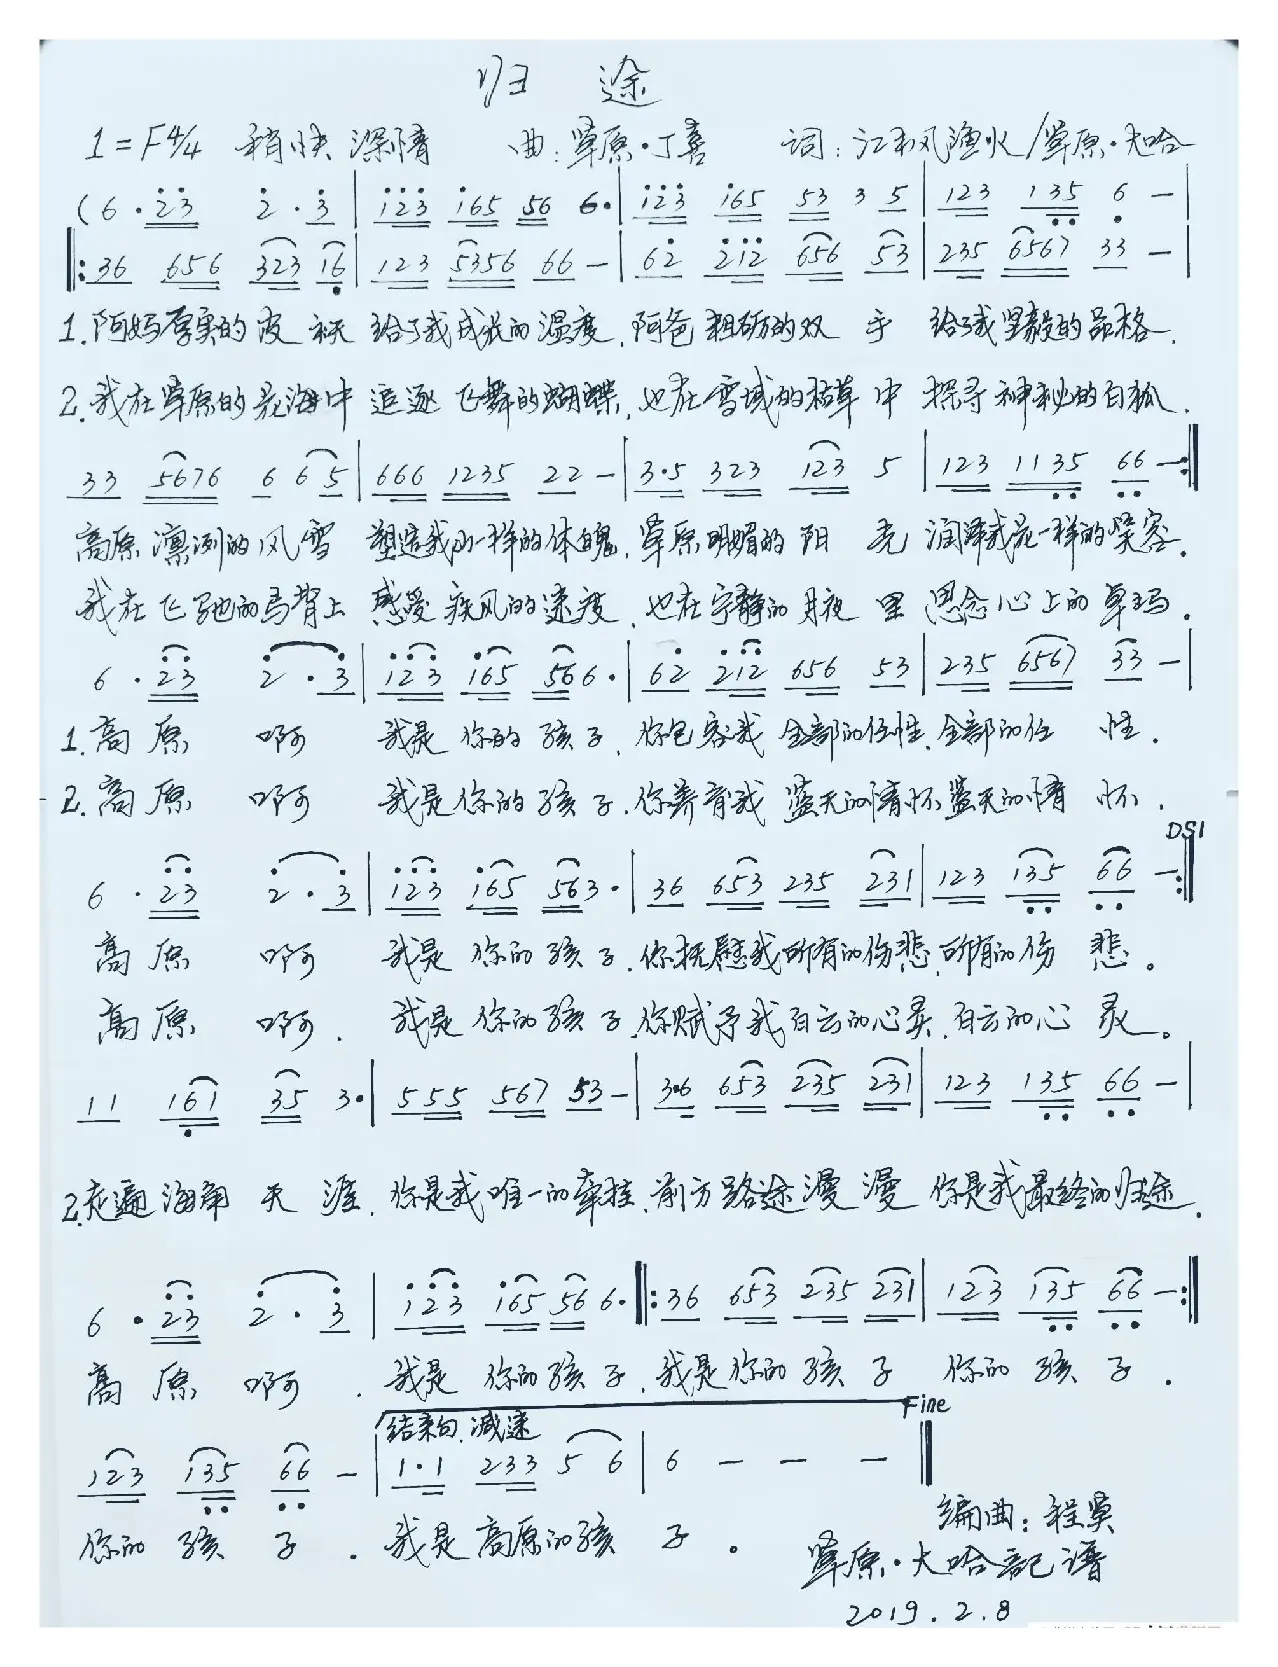 归 途
1=F4/4 稍快 深情 曲:草原·丁喜 词:江枫渔火/草原·大哈
(6·23 2·3 | 123 165 56 6· | 123 165 53 3 5 | 123 135 6 — |
‖: 36 656 323 16 | 123 5356 66 — | 62 212 656 53 | 235 6567 33 — |
1.阿妈厚实的皮袄 给了我成长的温度,阿爸粗砺的双 手 给了我坚毅的品格.
2.我在草原的花海中 追逐飞舞的蝴蝶,也在雪域的枯草中 探寻神秘的白狐.
33 5676 6 6 5 | 666 1235 22 — | 3·5 323 123 5 | 123 1135 66 — :‖
高原凛冽的风雪 塑造我山一样的体魄,草原明媚的阳 光 润泽我花一样的笑容.
我在飞驰的马背上 感受疾风的速度,也在宁静的月夜 里 思念心上的卓玛.
6·23 2·3 | 123 165 56 6· | 62 212 656 53 | 235 6567 33 — |
1.高原 啊 我是你的孩子,你包容我全部的任性,全部的任 性.
2.高原 啊 我是你的孩子.你养育我 蓝天的情怀 蓝天的情 怀.
DS1
6·23 2·3 | 123 165 563· | 36 653 235 231 | 123 135 66 — :‖
高原 啊 我是你的孩子.你抚慰我所有的伤悲,所有的伤 悲。
高原 啊. 我是你的孩子,你赋予我白云的心灵,白云的心 灵。
11 161 35 3· | 555 567 53 — | 3·6 653 235 231 | 123 135 66 — |
2.走遍海角 天 涯.你是我唯一的牵挂.前方路途漫 漫 你是我最终的归途.
6·23 2·3 | 123 165 56 6· ‖: 36 653 235 231 | 123 135 66 — :‖
高原 啊. 我是 你的孩子.我是你的孩 子 你的 孩 子.
结束句.减速 Fine
123 135 66 — | 1·1 233 5 6 | 6 — — — ‖
你的 孩 子. 我是高原的孩 子。
编曲:程昊
草原·大哈記譜
2019.2.8